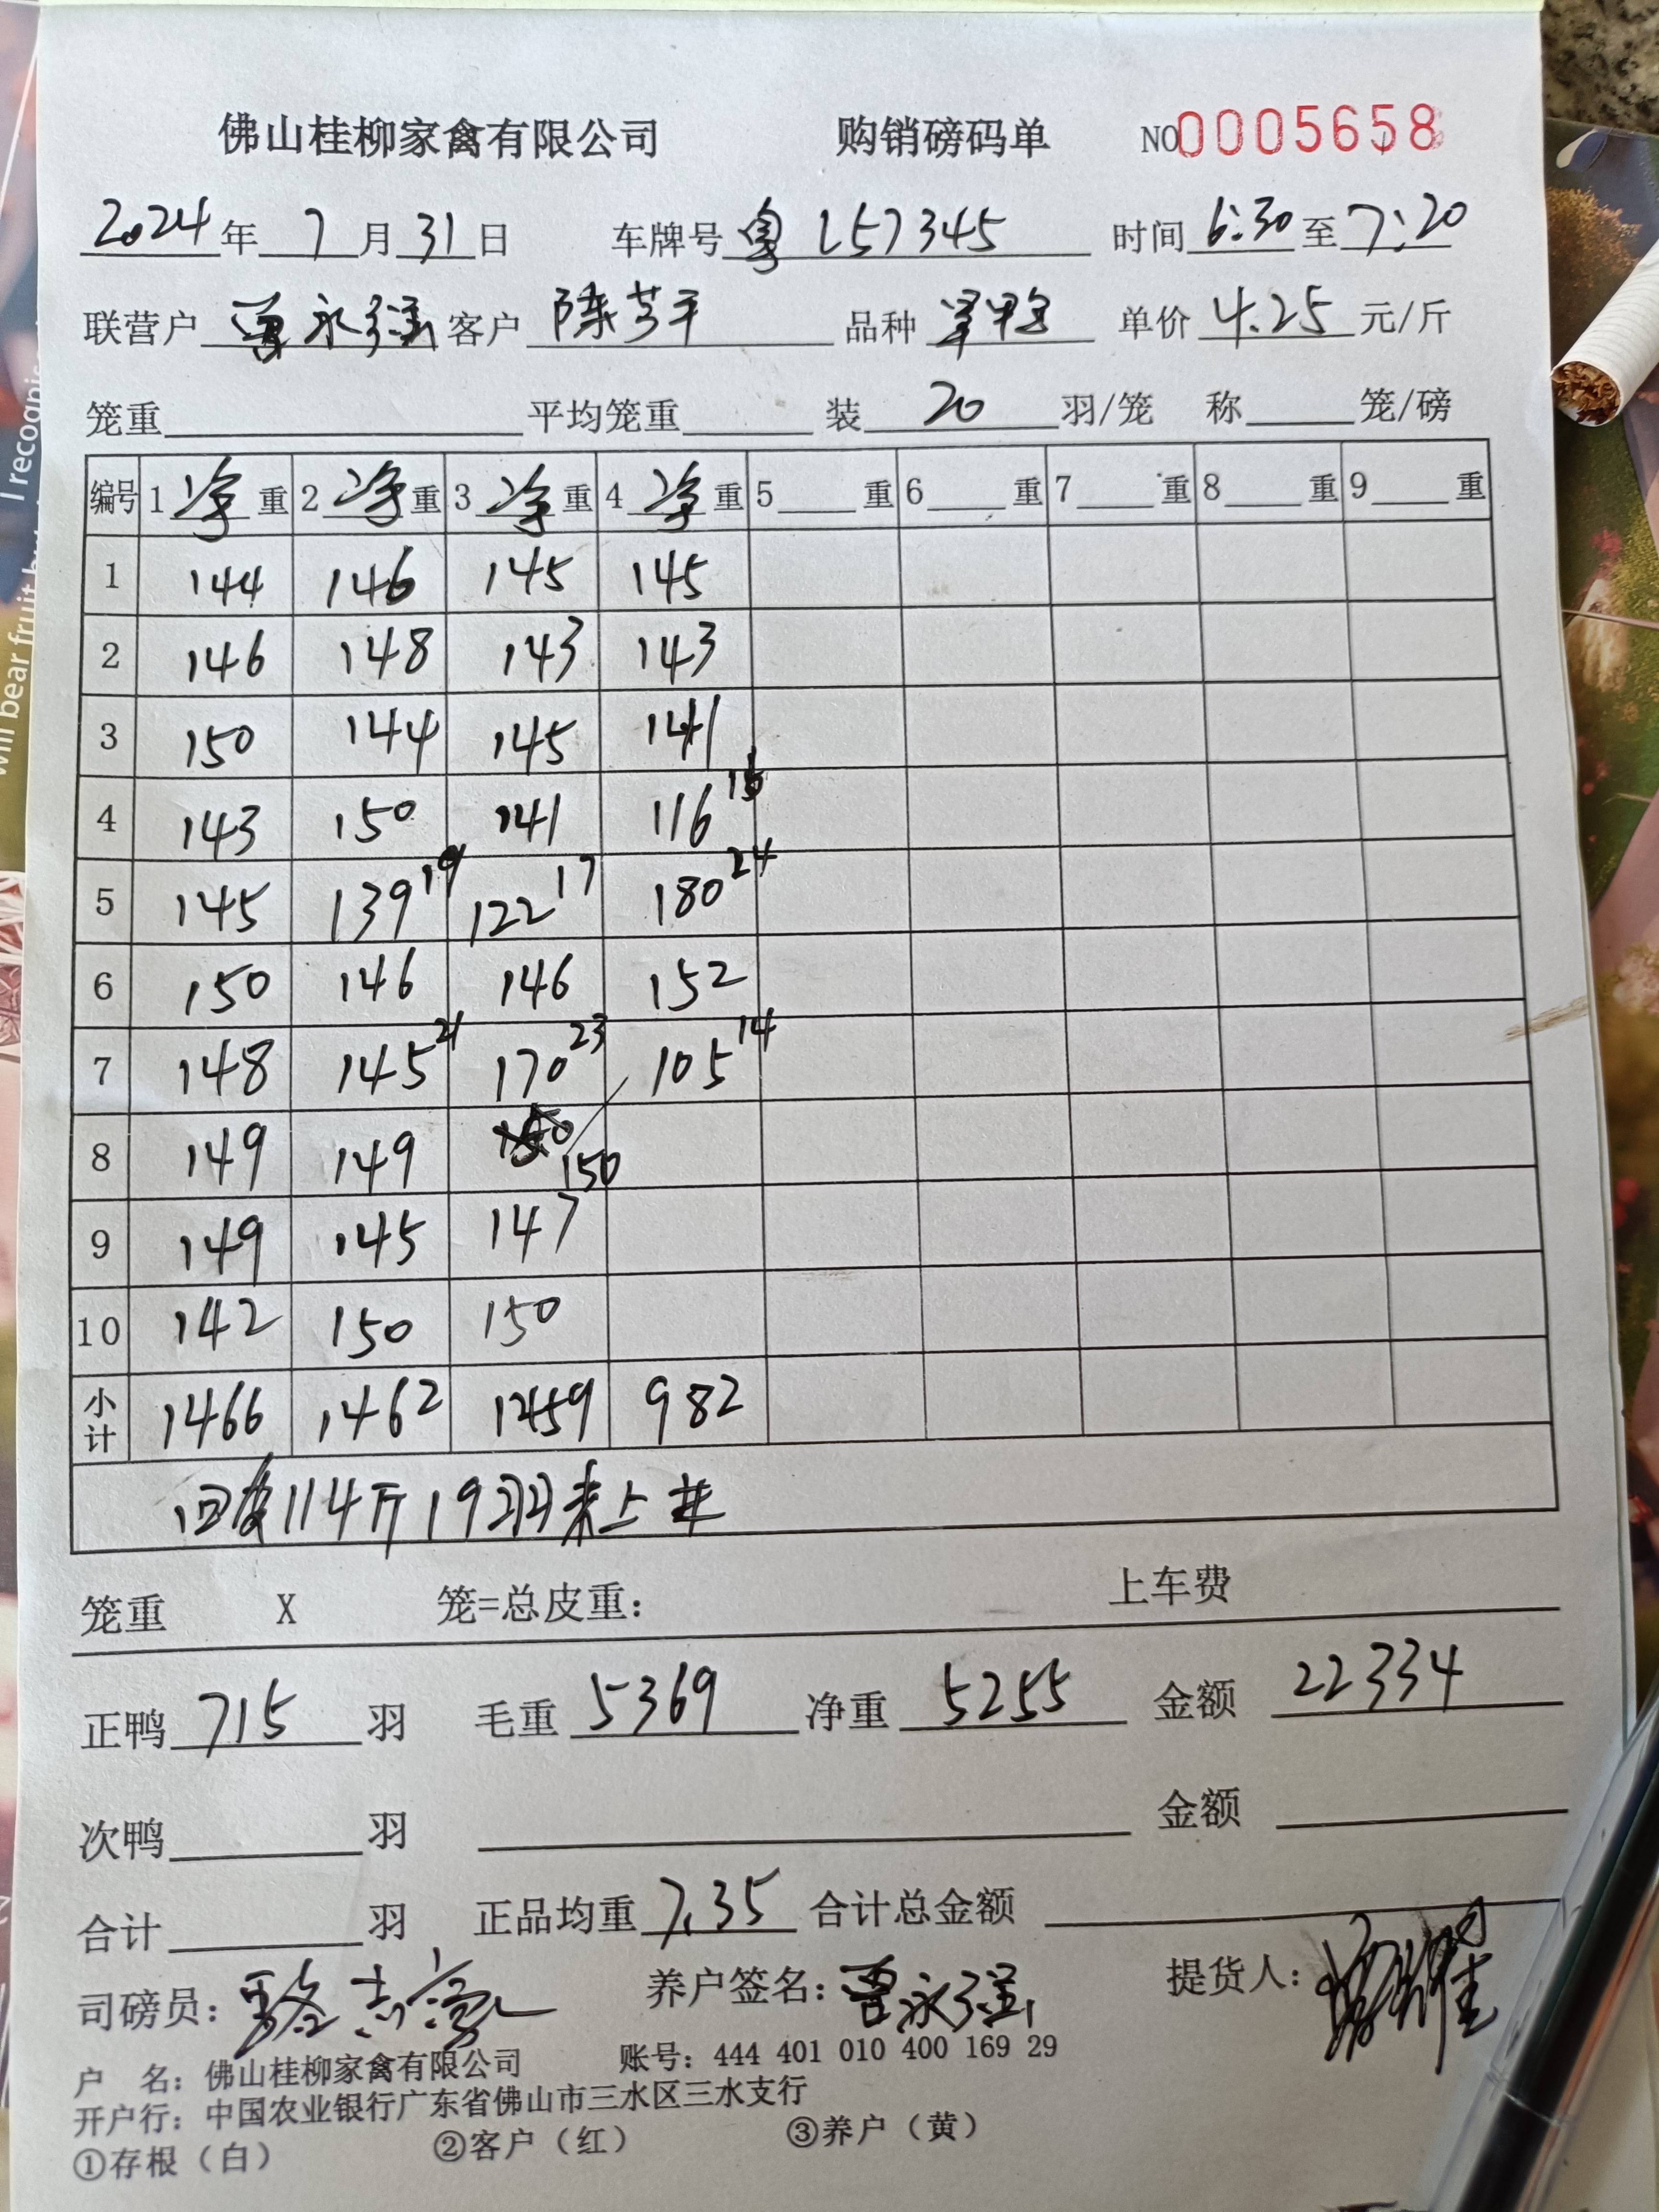 佛山桂柳家禽有限公司 购销磅码单 NO0005658
2024年 7月31日 车牌号 粤L57345 时间 6:30 至 7:20
联营户 曾永强 客户 陈芳平 品种 单价 4.25 元/斤
笼重 平均笼重 装 20 羽/笼 称 笼/磅
编号 1 净 重 2 净 重 3 净 重 4 净 重 5 重 6 重 7 重 8 重 9 重
1 144 146 145 145
2 146 148 143 143
3 150 144 145 141
4 143 150 141 116
5 145 139 19 122 17 180 24
6 150 146 146 152
7 148 145 21 170 23 105 14
8 149 149 150
9 149 145 147
10 142 150 150
小计 1466 1462 1459 982
回 114斤19羽未上车
笼重 X 笼=总皮重: 上车费
正鸭 715 羽 毛重 5369 净重 5255 金额 22334
次鸭 羽 金额
合计 羽 正品均重 7.35 合计总金额
司磅员: 骆志豪 养户签名: 曾永强 提货人:
户 名: 佛山桂柳家禽有限公司 账号: 444 401 010 400 169 29
开户行: 中国农业银行广东省佛山市三水区三水支行
①存根(白) ②客户(红) ③养户(黄)
I recognis
will bear fruit